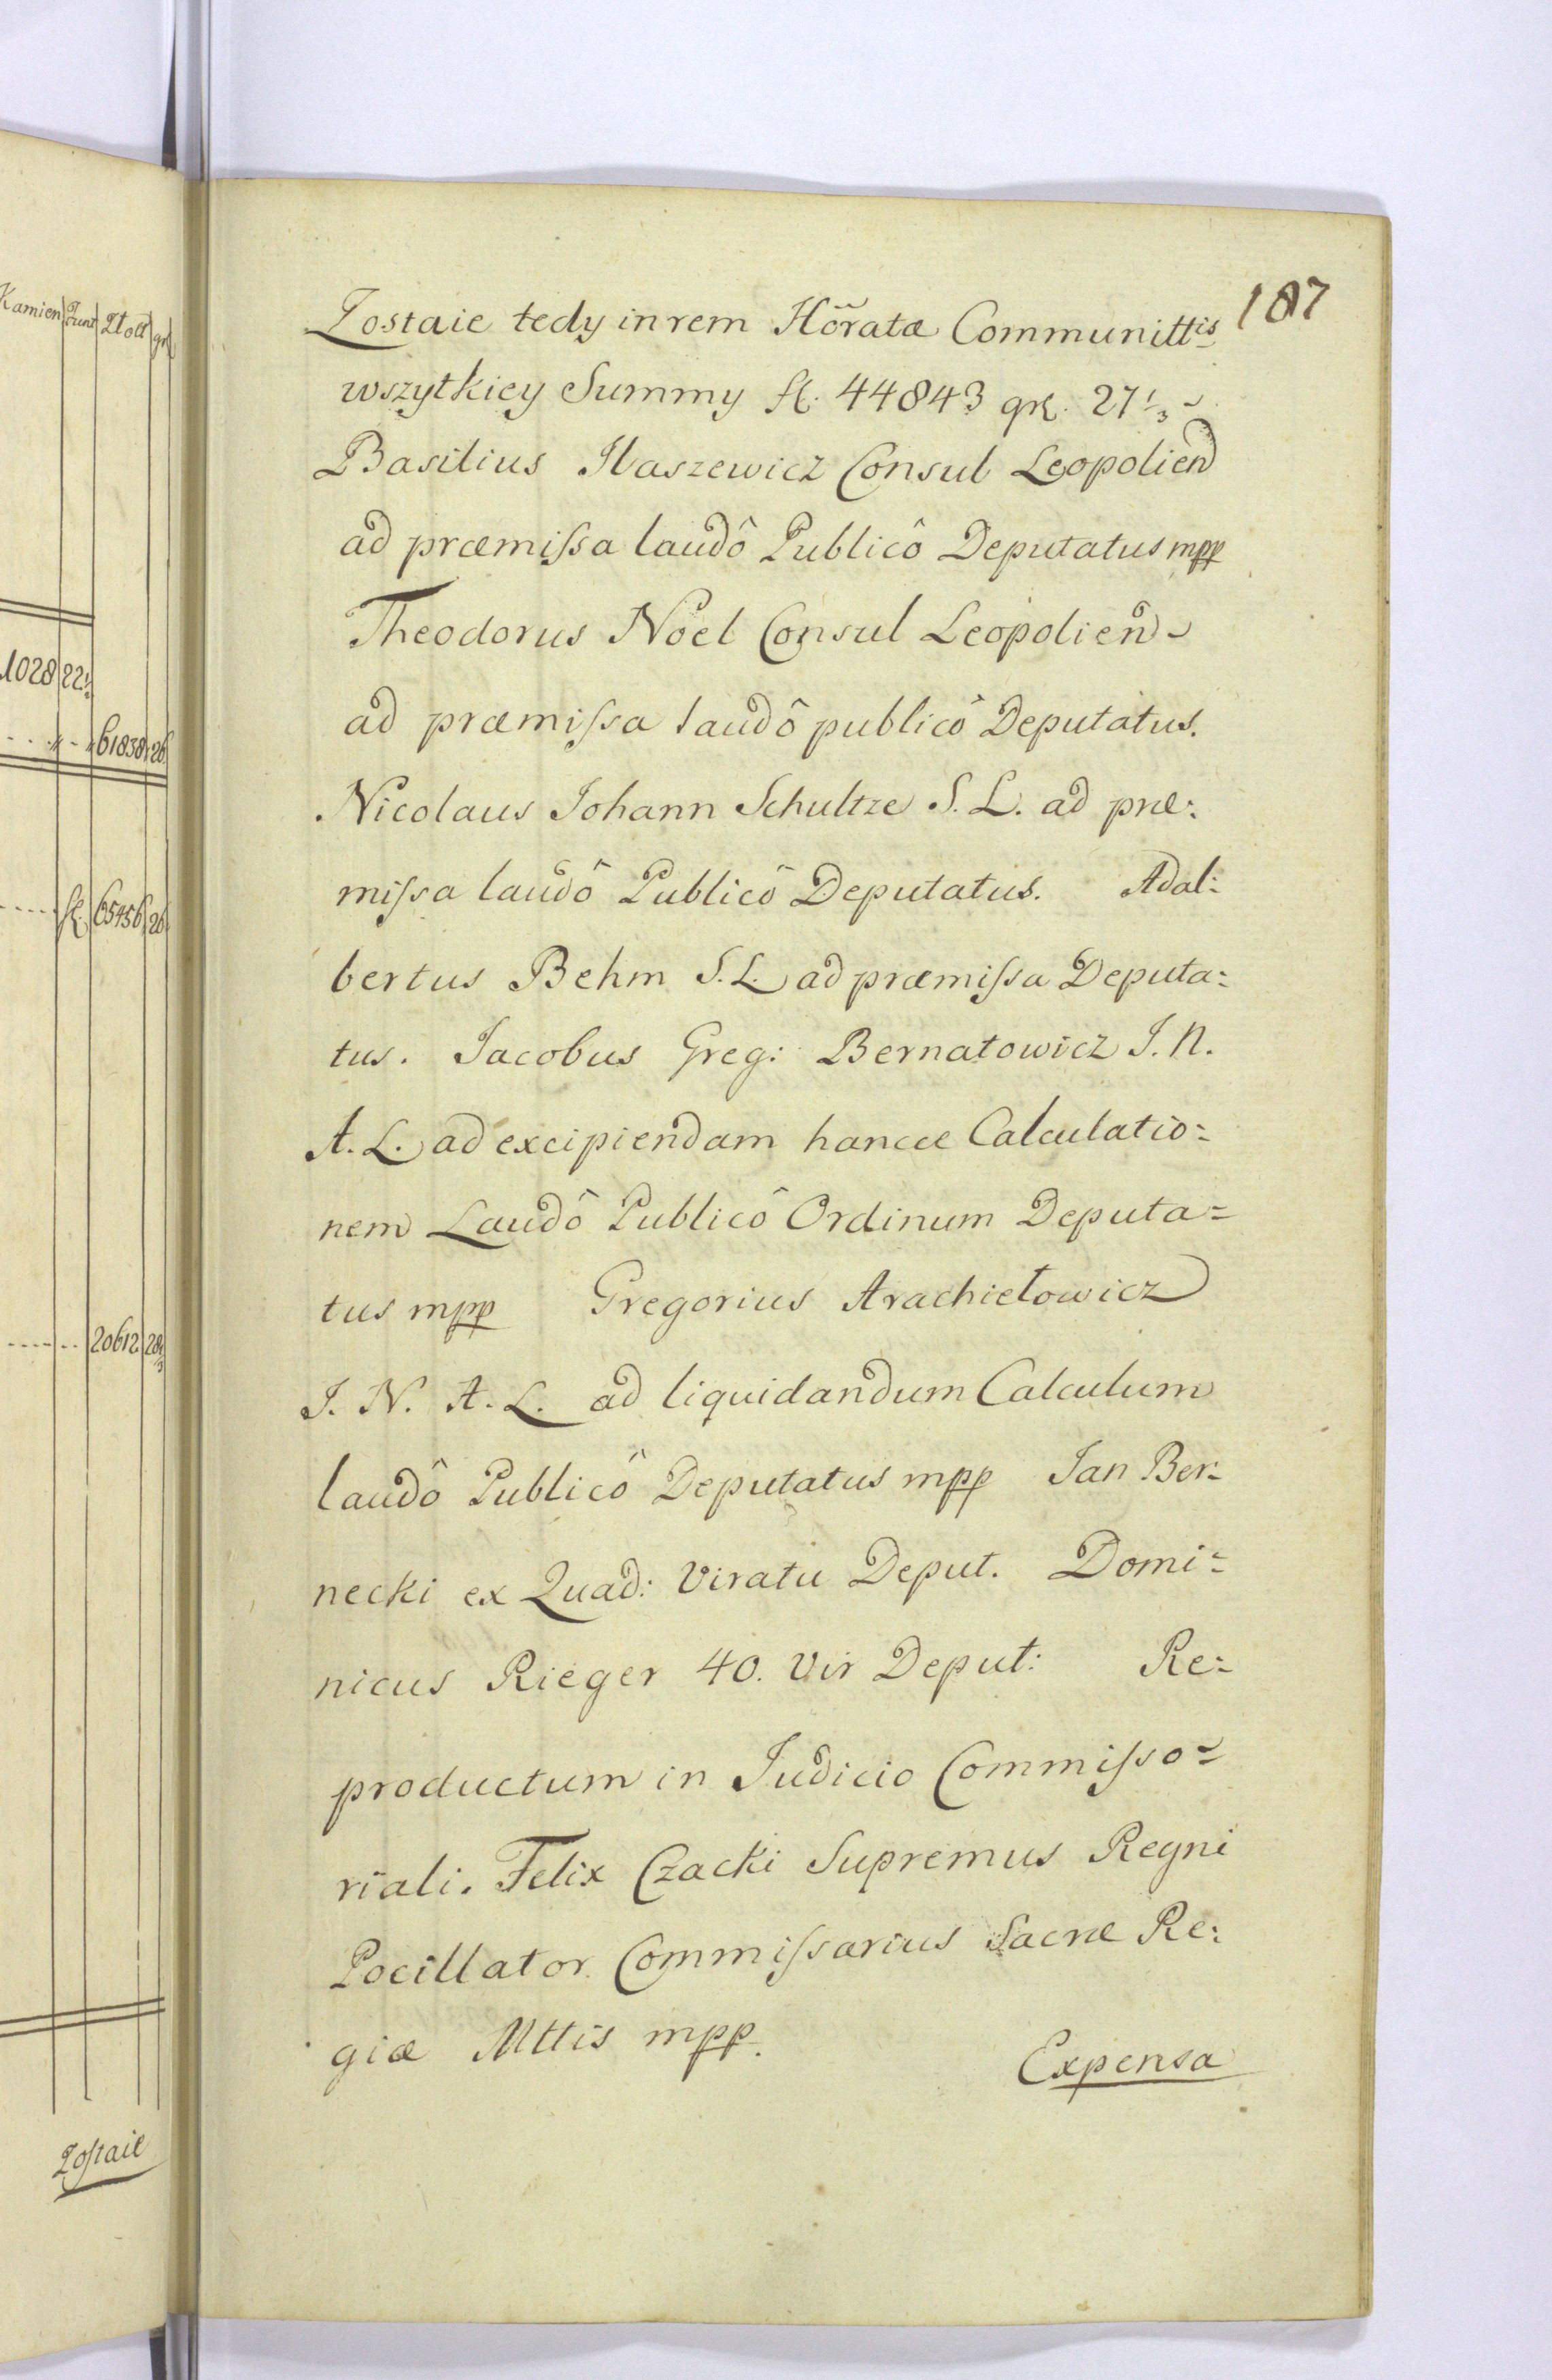 Kamien Funt Złott gr
1028 22½
61838 26
fl. 65456 26
20612 28⅔
Zostaie
187
Zostaie tedy in rem Hõratæ Communittis
wszytkiey Summy fl. 44843 gr. 27⅓
Basilius Ilaszewicz Consul Leopolien
ad præmissa laudô Publicô Deputatus mpp
Theodorus Nöel Consul Leopolien
ad præmissa laudô publicô Deputatus.
Nicolaus Johann Schultze S. L. ad præ:
missa laudô Publicô Deputatus. Adal:
bertus Behm S. L. ad præmissa Deputa:
tus. Jacobus Greg: Bernatowicz J. N.
A. L. ad excipiendam hancce Calculatio:
nem Laudô Publicô Ordinum Deputa=
tus mpp Gregorius Arachiełowicz
J. N. A. L. ad liquidandum Calculum
laudô Publicô Deputatus mpp Jan Ber:
necki ex Quad: Viratu Deput. Domi=
nicus Rieger 40. Vir Deput: Re:
productum in Judicio Commisso=
riali. Felix Czacki Supremus Regni
Pocillator Commissarius Sacræ Re:
giæ Mttis mpp.
Expensa